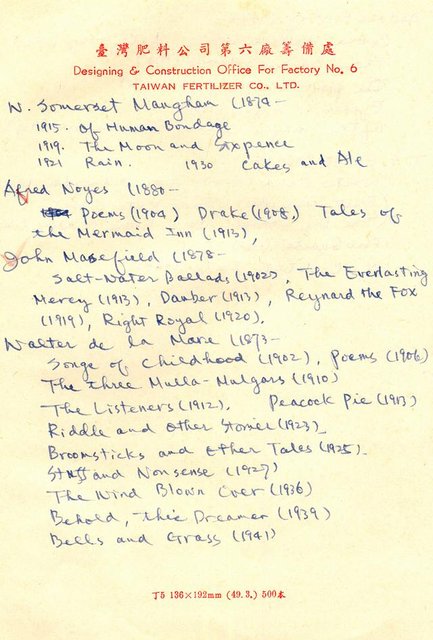 臺灣肥料公司第六廠籌備處
Designing & Construction Office For Factory No. 6
TAIWAN FERTILIZER CO., LTD.
W. Somerset Maugham (1874—
1915. Of Human Bondage
1919. The Moon and Sixpence
1921 Rain. 1930 Cakes and Ale
Alfred Noyes (1880—
Poems (1904) Drake (1908,) Tales of
the Mermaid Inn (1913),
John Masefield (1878—
Salt-Water Ballads (1902), The Everlasting
Mercy (1913), Dauber (1913), Reynard the Fox
(1919), Right Royal (1920),
Walter de la Mare (1873—
Songs of Childhood (1902), Poems (1906)
The Three Mulla-Mulgars (1910)
The Listeners (1912), Peacock Pie (1913)
Riddle and Other Stories (1923)
Broomsticks and Other Tales (1925)
Stuff and Nonsense (1927)
The Wind Blown Over (1936)
Behold, this Dreamer (1939)
Bells and Grass (1941)
丁5 136×192mm (49.3.) 500本